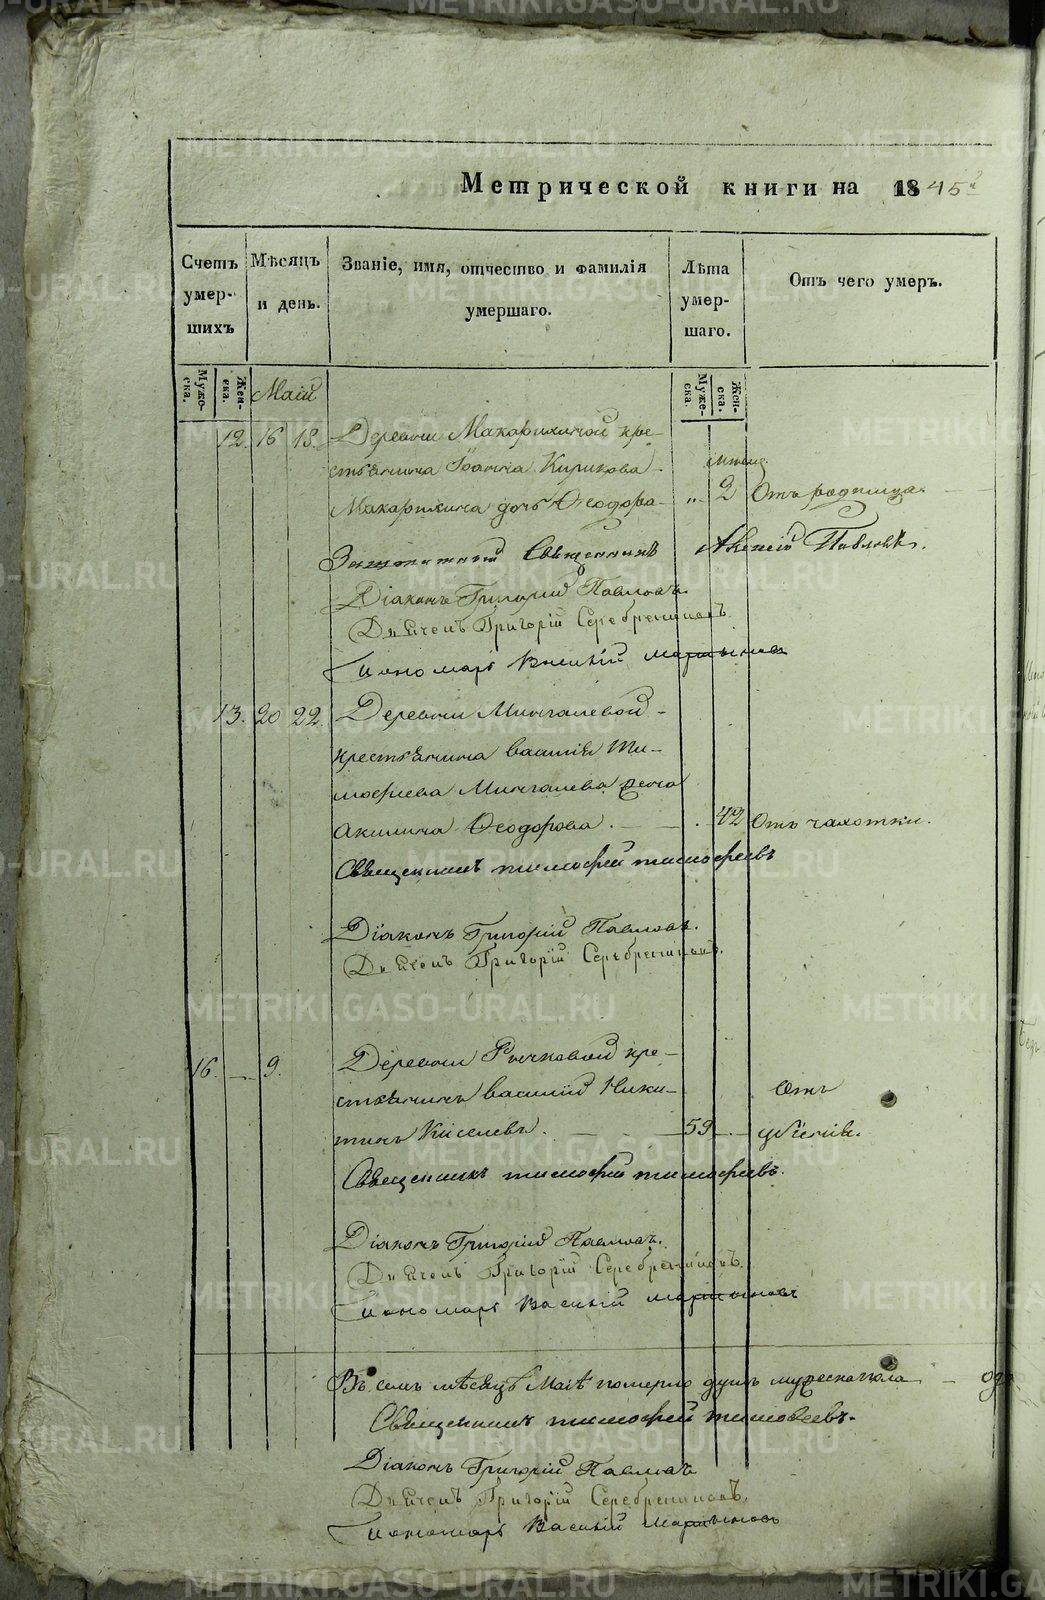 Метрической книги на 1845 г
Счетъ умер- шихъ
Мѣсяцъ и день.
Званіе, имя, отчество и фамилія умершаго.
Лѣта умер- шаго.
Отъ чего умеръ.
Мужес- ска.
Жен- ска.
Маій
Муже- ска.
Жен- ска.
12. 16 18. Деревни Макарихиной кре-
стьянина Іоанна Кирикова
Макарихина дочь Ѳеодора " 2 Отъ родимца.
Заштатный Священникъ Алексій Павловъ.
Діаконъ Григорій Павловъ.
Дьячекъ Григорій Серебрениковъ.
Пономарь Василій Мартыновъ
13. 20 22. Деревни Мингалевой
крестьянина Василія Ти-
мофеева Мингалева жена
Акилина Ѳеодорова. 42 Отъ чахотки.
Священникъ Тимофей Тимофеевъ
Діаконъ Григорій Павловъ.
Дьячекъ Григорій Серебрениковъ.
16. 9. Деревни Рычковой кре-
стьянинъ Василій Ники-
тинъ Киселевъ. 59 Отъ
убіенія.
Священникъ Тимофей Тимофеевъ.
Діаконъ Григорій Павловъ.
Дьячекъ Григорій Серебрениковъ.
Пономарь Василій Мартыновъ
Въ семъ мѣсяцѣ Маіѣ померло душъ мужеска пола
Священникъ Тимофей Тимофеевъ.
Діаконъ Григорій Павловъ
Дьячекъ Григорій Серебрениковъ.
Пономарь Василій Мартыновъ
METRIKI.GASO-URAL.RU